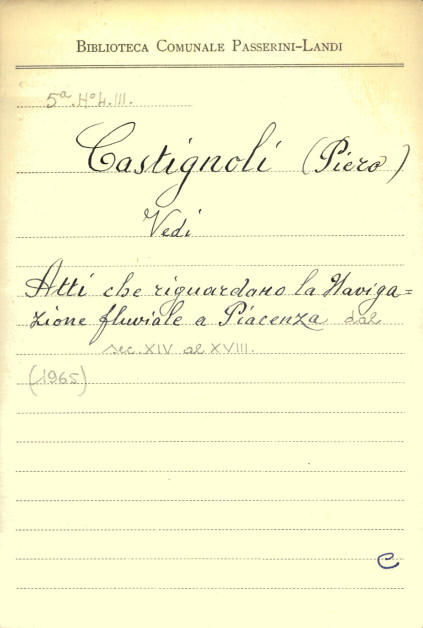 BIBLIOTECA COMUNALE PASSERINI-LANDI
5ª.Hº.4.III.
Castignoli (Piero)
Vedi
Atti che riguardano la Naviga=
zione fluviale a Piacenza dal
sec. XIV al XVIII.
(1965)
C